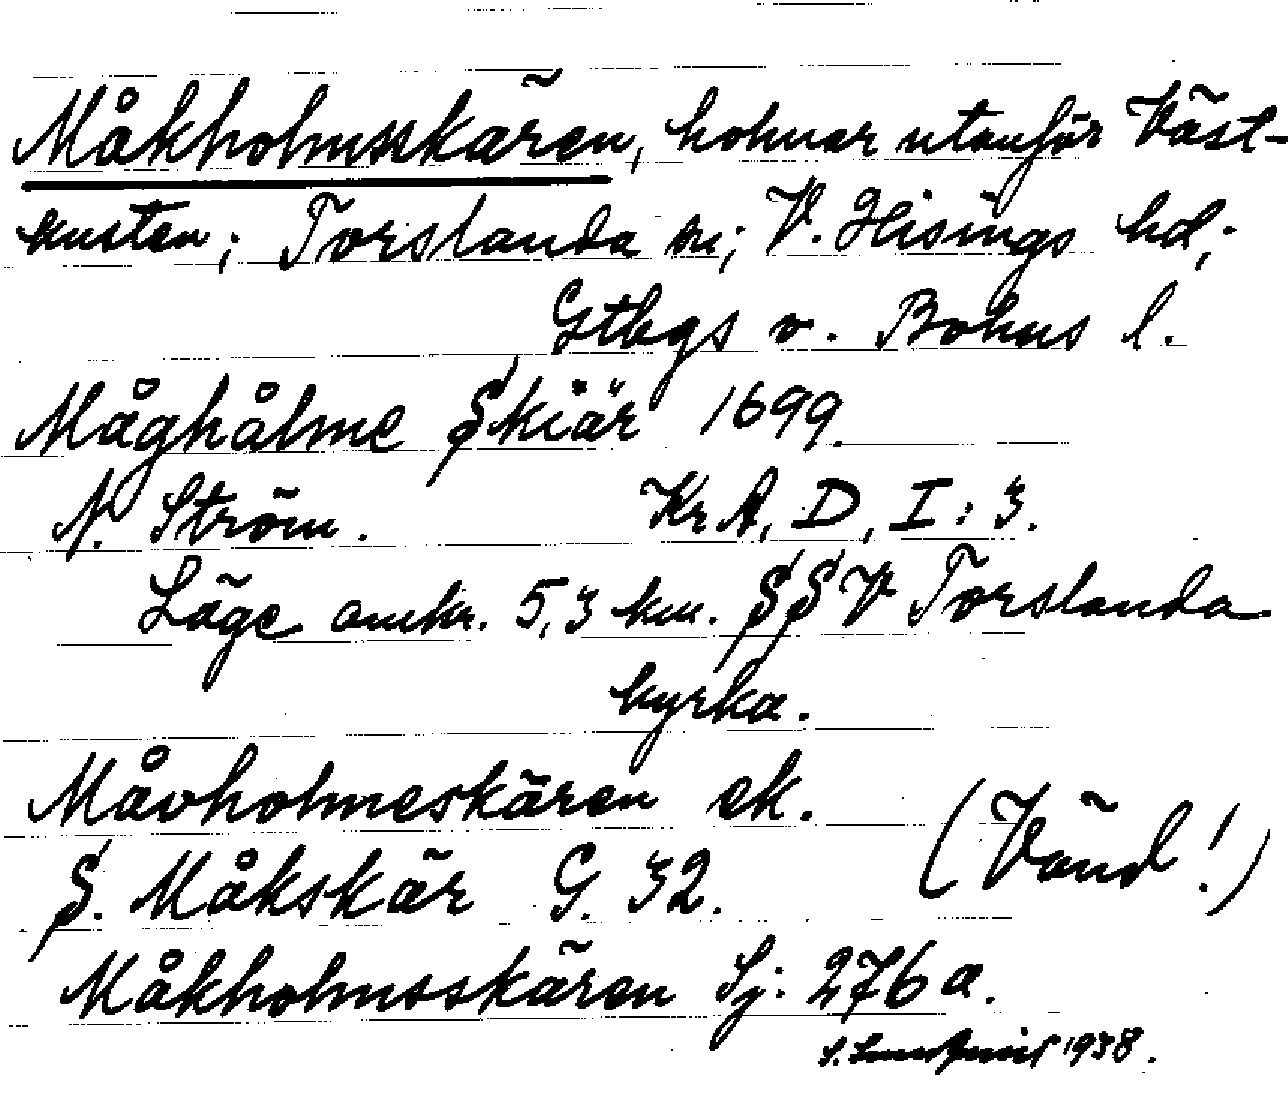 Måkholmsskären, holmar utanför Väst-
kusten; Torslanda sn; V. Hisings hd;
Gtbgs o. Bohus l.
Måghålme Skiär 1699.
N. Ström. KrA, D, I: 3.
Läge omkr. 5,3 km. SSV Torslanda
kyrka.
Måvholmeskären ek.
(Vänd!)
S. Måkskär G. 32.
Måkholmsskären Sj: 276 a.
S. Lundqvist 1938.